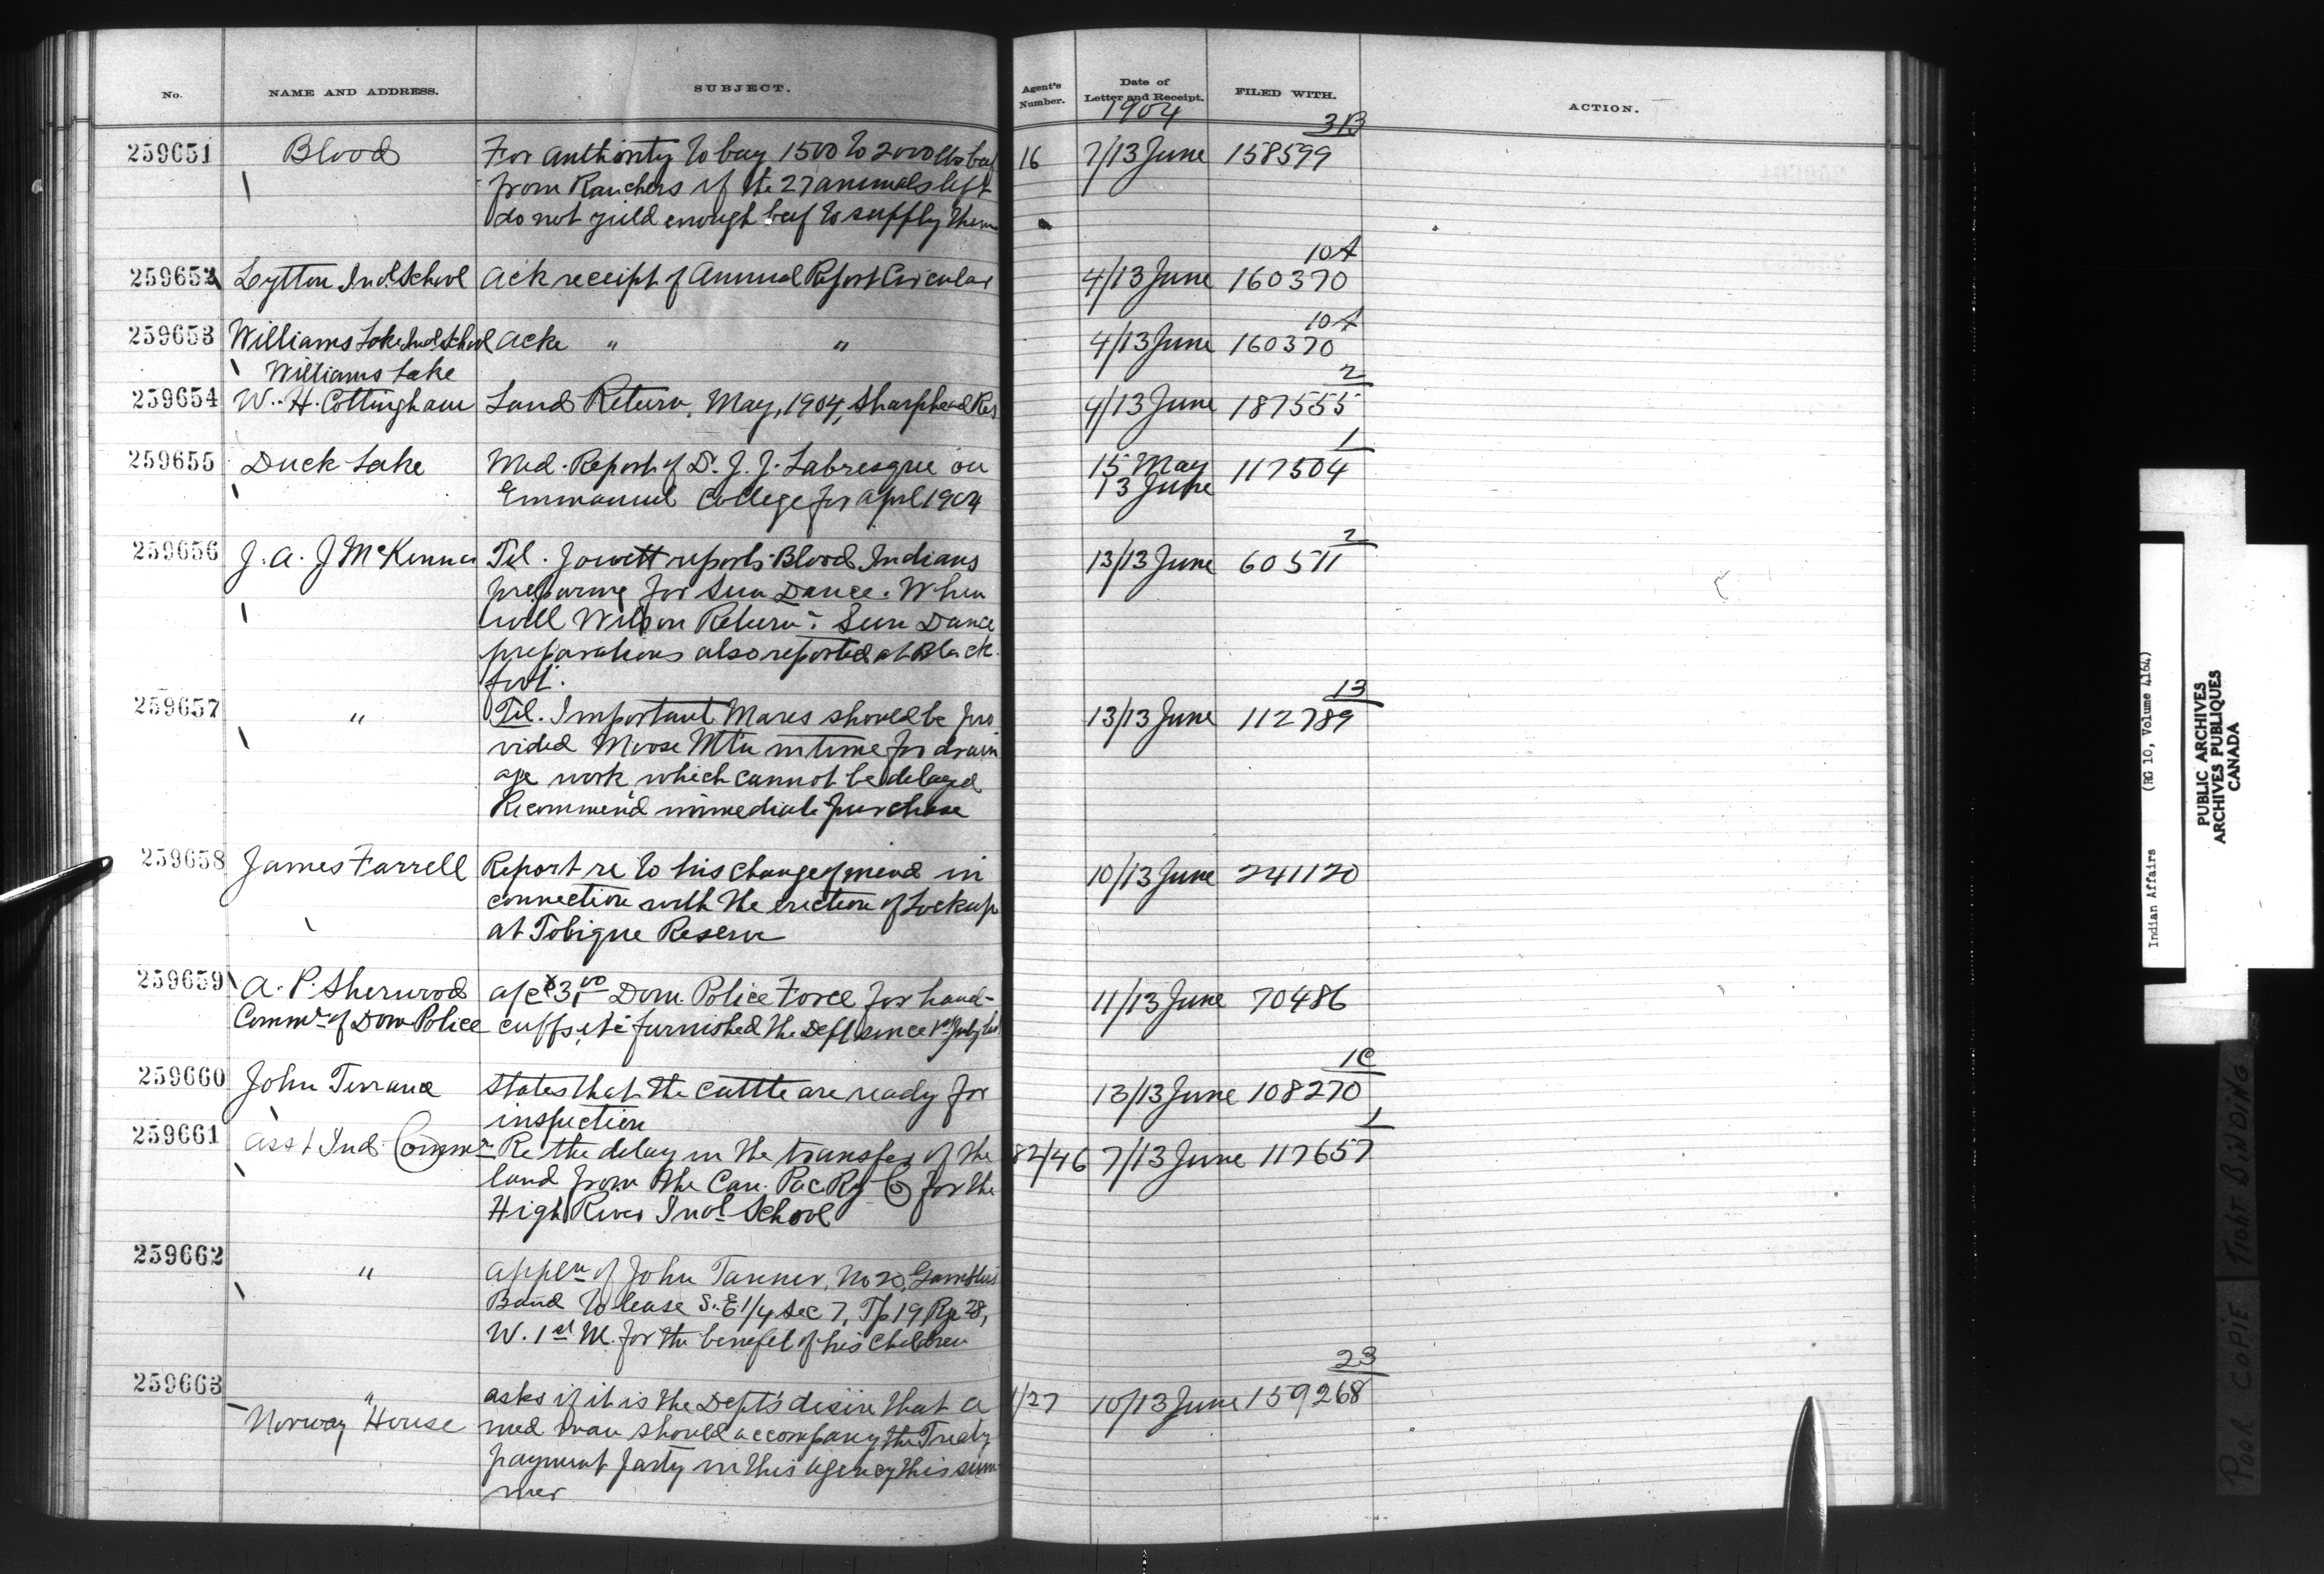 No. NAME AND ADDRESS. SUBJECT. Agent's Number. Date of Letter and Receipt. FILED WITH. ACTION.
1904
3B
259651 Blood For authority to buy 1500 to 2000 lbs beef 16 7/13 June 158599
from Ranchers if the 27 animals left
do not yield enough beef to supply them
10A
259652 Lytton Indl. School Ack receipt of Annual Report Circular 4/13 June 160370
10A
259653 Williams Lake Indl. School Acke " " 4/13 June 160370
Williams Lake
2
259654 W. H. Cottingham Land Return, May, 1904, Sharphead Res 4/13 June 187555
1
259655 Duck Lake Med. Report of Dr. J. J. Labresque on 15 May 117504
Emmanuel College for April 1904 13 June
2
259656 J. A. J McKenna Tel. Jowett reports Blood Indians 13/13 June 60511
preparing for Sun Dance. When
will Wilson Return? Sun Dance
preparations also reported at Black
foot.
13
259657 " Tel. Important Mares should be pro 13/13 June 112789
vided Moose Mtn in time for drain
age work, which cannot be delayed
Recommend immediate purchase
259658 James Farrell Report re to his change of mind in 10/13 June 241120
connection with the erection of Lockup
at Tobique Reserve
259659 A. P. Sherwood a/c $3.00 Dom. Police Force for hand- 11/13 June 70486
Commr. of Dom Police cuffs, etc furnished the Dept since 1st July last
1C
259660 John Terrance States that the cattle are ready for 13/13 June 108270
inspection
1
259661 Asst Ind. Commr. Re the delay in the transfer of the 82/46 7/13 June 117657
land from the Can. Pac Ry Co for the
High River Indl. School
259662 " Appln of John Tanner, No 20, Gamblers
Band to lease S.E. 1/4 Sec 7, Tp 19 Rge 28,
W. 1st M. for the benefit of his Children
23
259663 " asks if it is the Dept's desire that a 1/27 10/13 June 159268
Norway House med. man should accompany the Treaty
payment party in this agency this sum
mer
Indian Affairs (RG 10, Volume 4164)
PUBLIC ARCHIVES
ARCHIVES PUBLIQUES
CANADA
POOR COPIE TIGHT BINDING